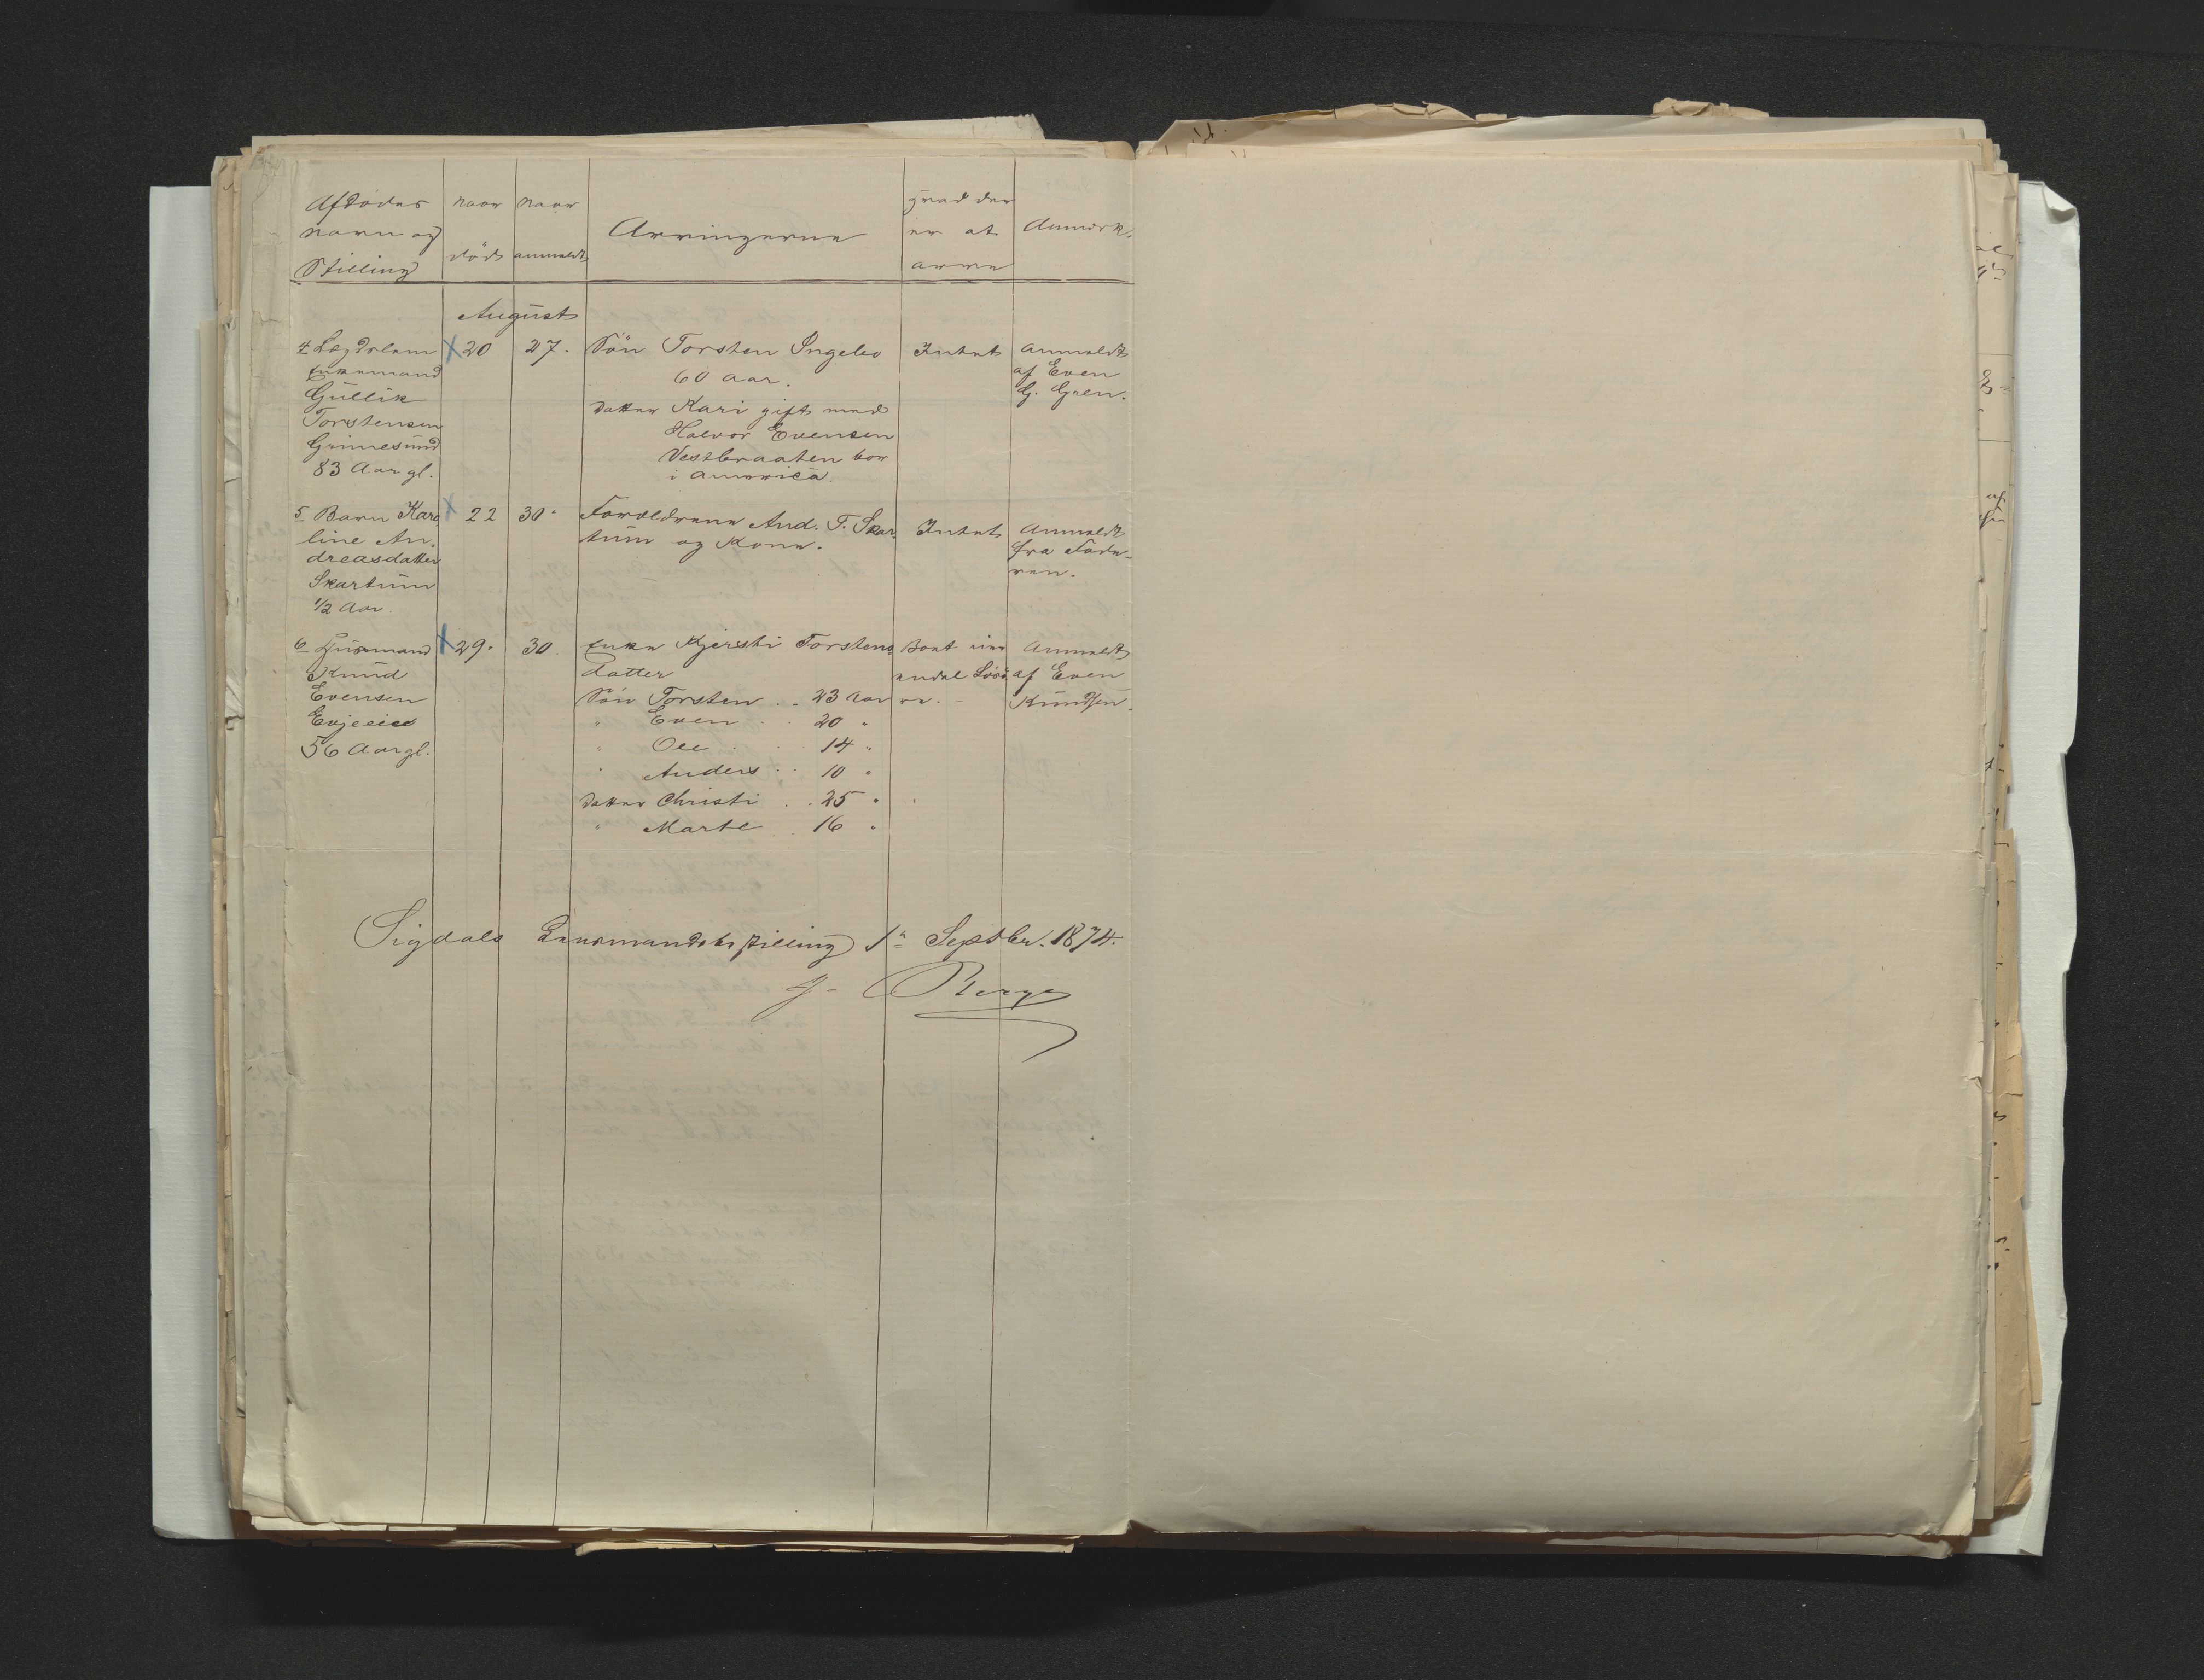 Afdödes
navn og
Stilling
naar
död
naar
anmeldt
Arvingerne
hvad der
er at
arve
Anmærk.
August
4 Lægdslem
Enkemand
Gullik
Torstensen
Grimesund
83 Aar gl.
20
27.
Sön Torsten Ingelev
60 Aar.
Datter Kari gift med
Halvor Evensen
Vestbraaten bor
i America.
Intet
Anmeldt
af Even
G. Gren.
5 Barn Karo
line An-
dreasdatter
Skartum
1/2 Aar
22
30.
Forældrene And. T. Skar-
tum og Kone.
Intet
Anmeldt
fra Fade-
ren.
6 Husmand
Knud
Evensen
Evjeeiet
56 Aar gl.
29.
30
Enke Kjersti Torstens
datter
Sön Torsten . . 23 Aar
" Even . . 20 "
" Ole . . 14 "
" Anders . . 10 "
Datter Christi . . 25 "
" Marte . 16 "
Boet
endel Lösö
re. -
Anmeldt
af Even
Knudsen.
Sigdals Lensmandsbestilling 1n Septbr. 1874.
Berge